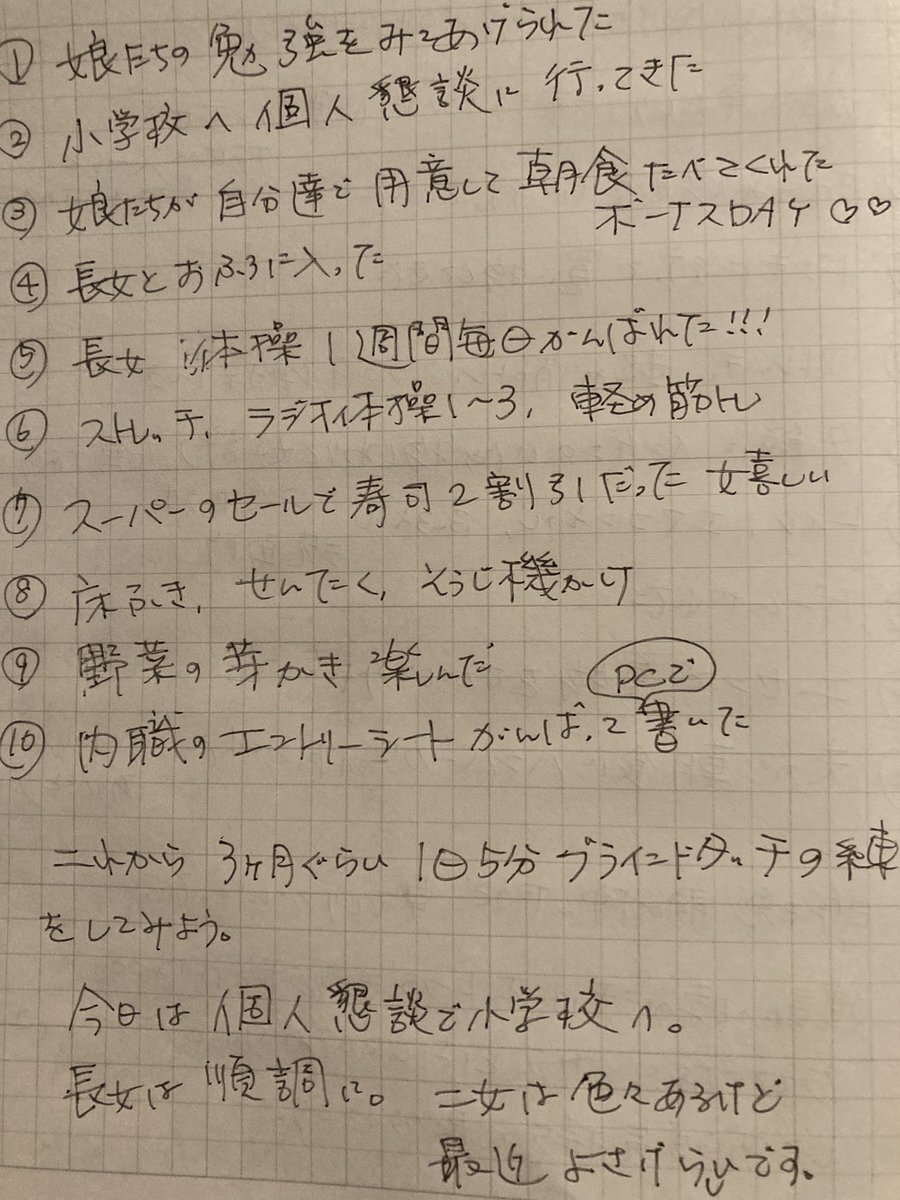 ① 娘たちの勉強をみてあげられた
② 小学校へ個人懇談に行ってきた
③ 娘たちが自分達で用意して朝食たべてくれた
ボーナスDAY ♡♡
④ 長女とおふろに入った
⑤ 長女 体操1週間毎日がんばれた!!!
⑥ ストレッチ、ラジオ体操1~3、軽め筋トレ
⑦ スーパーのセールで寿司2割引だった 嬉しい
⑧ 床ふき、せんたく、そうじ機かけ
⑨ 野菜の芽かき楽しんだ
PCで
⑩ 内職のエントリーシートがんばって書いた
これから3ヶ月ぐらい1日5分ブラインドタッチの練
をしてみよう。
今日は個人懇談で小学校へ。
長女は順調に。二女は色々あるけど
最近よさげらしいです。